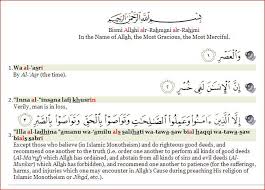 بِسْمِ اللَّهِ الرَّحْمَٰنِ الرَّحِيمِ
Bismi Allāhi alr-Raḥmāni alr-Raḥīmi
In the Name of Allâh, the Most Gracious, the Most Merciful.
وَالْعَصْرِ ﴿١﴾
1. Wa al-'aṣri
By Al-'Asr (the time).
إِنَّ الْإِنْسَانَ لَفِي خُسْرٍ ﴿٢﴾
2. "Inna al-"insāna lafī khusrin
Verily, man is in loss,
إِلَّا الَّذِينَ آمَنُوا وَعَمِلُوا الصَّالِحَاتِ وَتَوَاصَوْا بِالْحَقِّ وَتَوَاصَوْا بِالصَّبْرِ ﴿٣﴾
3. "Illa al-ladhīna "āmanu wa-'amilu als saliḥati wa-tawa-ṣaw bial ḥaqqi wa-tawa-ṣaw
bials ṣabri
Except those who believe (in Islamic Monotheism) and do righteous good deeds, and
recommend one another to the truth (i.e. order one another to perform all kinds of good deeds
(Al-Ma'ruf) which Allah has ordained, and abstain from all kinds of sin and evil deeds (Al-
Munkar) which Allah has forbidden), and recommend one another to patience (for the sufferings,
harms, and injuries which one may encounter in Allah's Cause during preaching His religion of
Islamic Monotheism or Jihad, etc.).